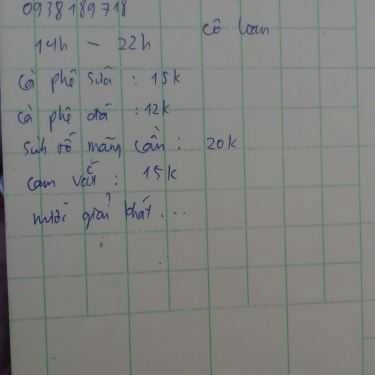 0938189718
cô loan
14h - 22h
cà phê sữa : 15k
cà phê đá : 12k
sinh tố mãng cần : 20k
cam vắt : 15k
nước giải khát ...